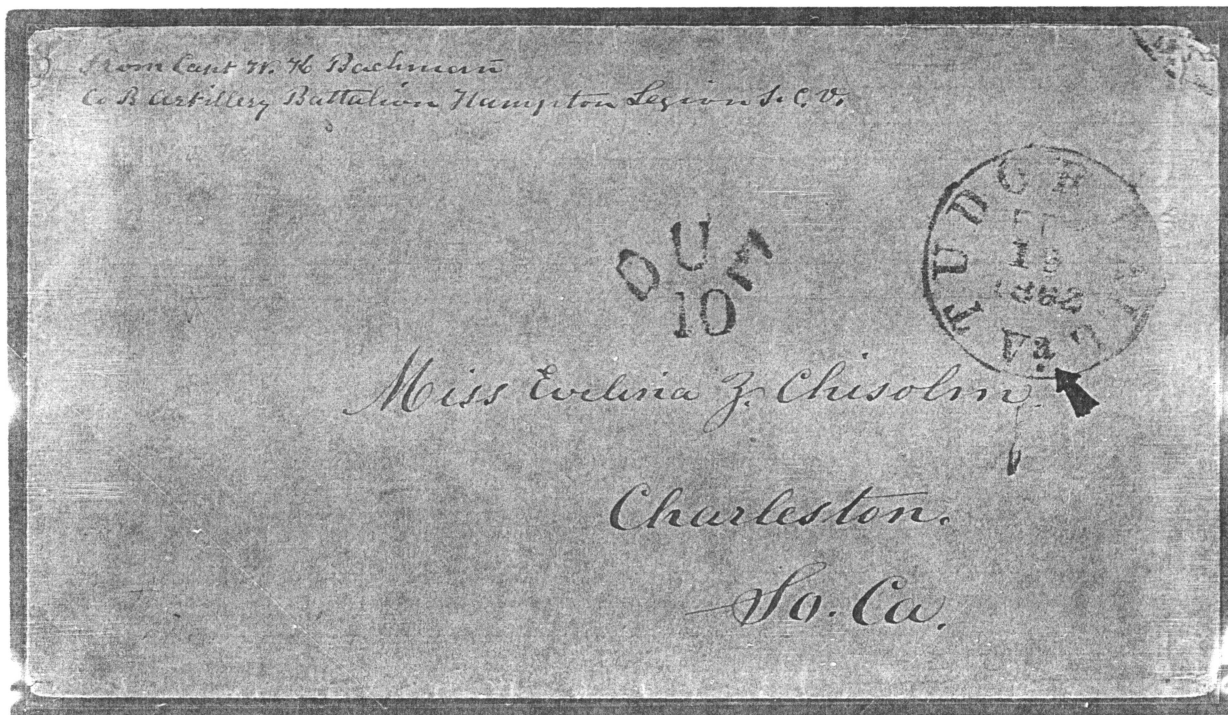 From Capt W. K Bachman
Co B Artillery Battalion Hampton Legion S. C. V.
TUDOR HALL
1862
Va.
DUE
10
Miss Evelina Z. Chisolm
Charleston.
So. Ca.